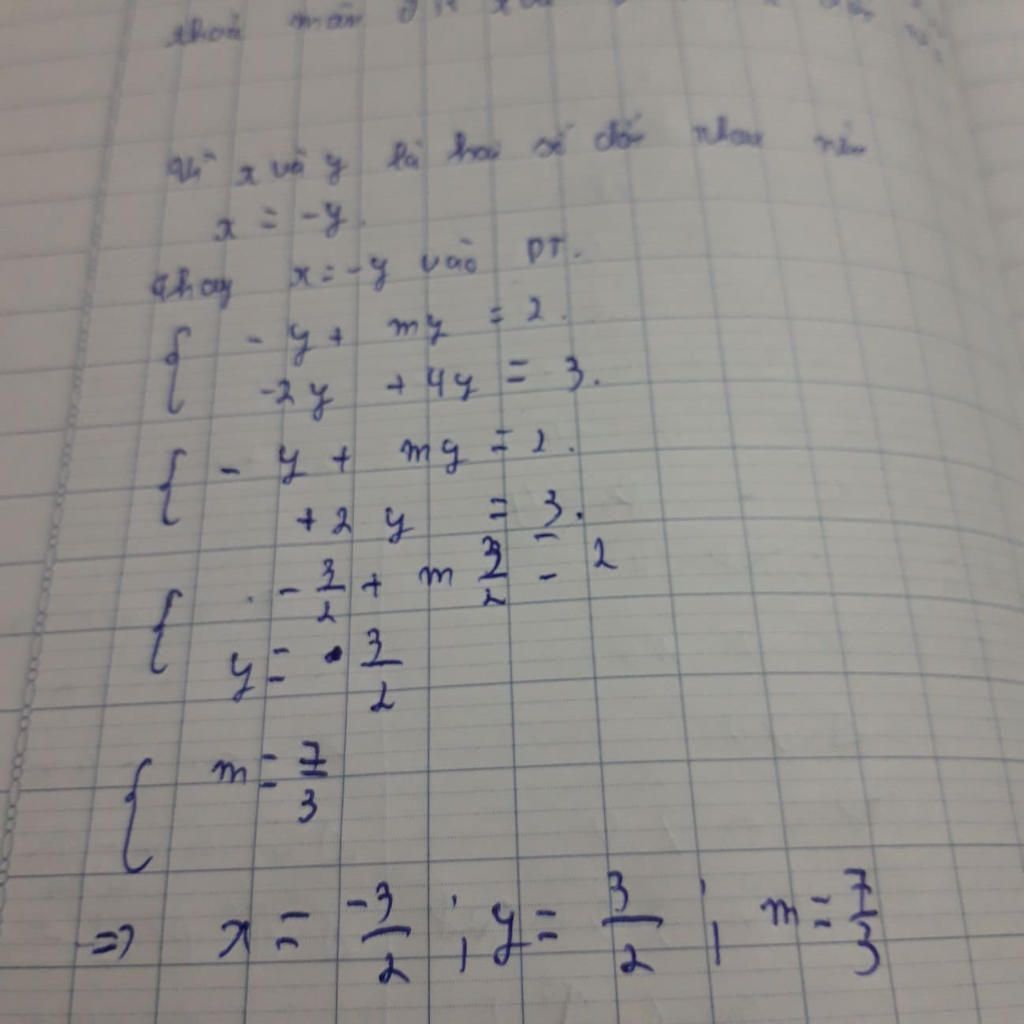 thoả mãn
Vì x và y là hai số đối nhau nên
x = -y.
Thay x = -y vào PT.
{ - y + my = 2.
-2y + 4y = 3.
{ - y + my = 2.
+2 y = 3.
{ - 3/2 + m 3/2 = 2
y = 3/2
{ m = 7/3
=> x = -3/2 ; y = 3/2 ; m = 7/3